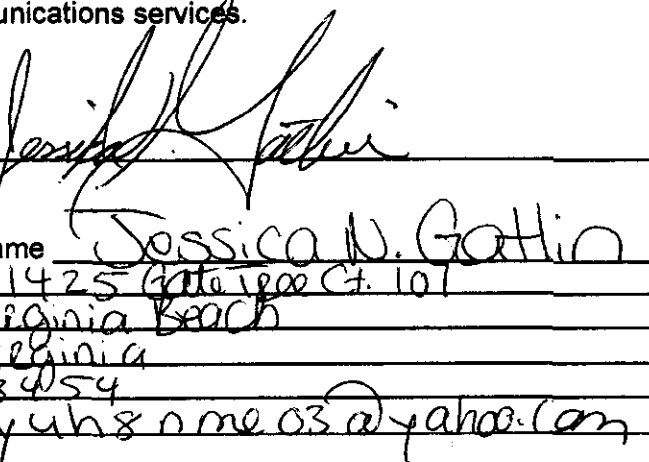 unications services.
Jessica N. Gatlin
ame Jessica N. Gatlin
1425 Gate 1200 Ct. 101
rginia Beach
rginia
3454
yuh8nme03@yahoo.com